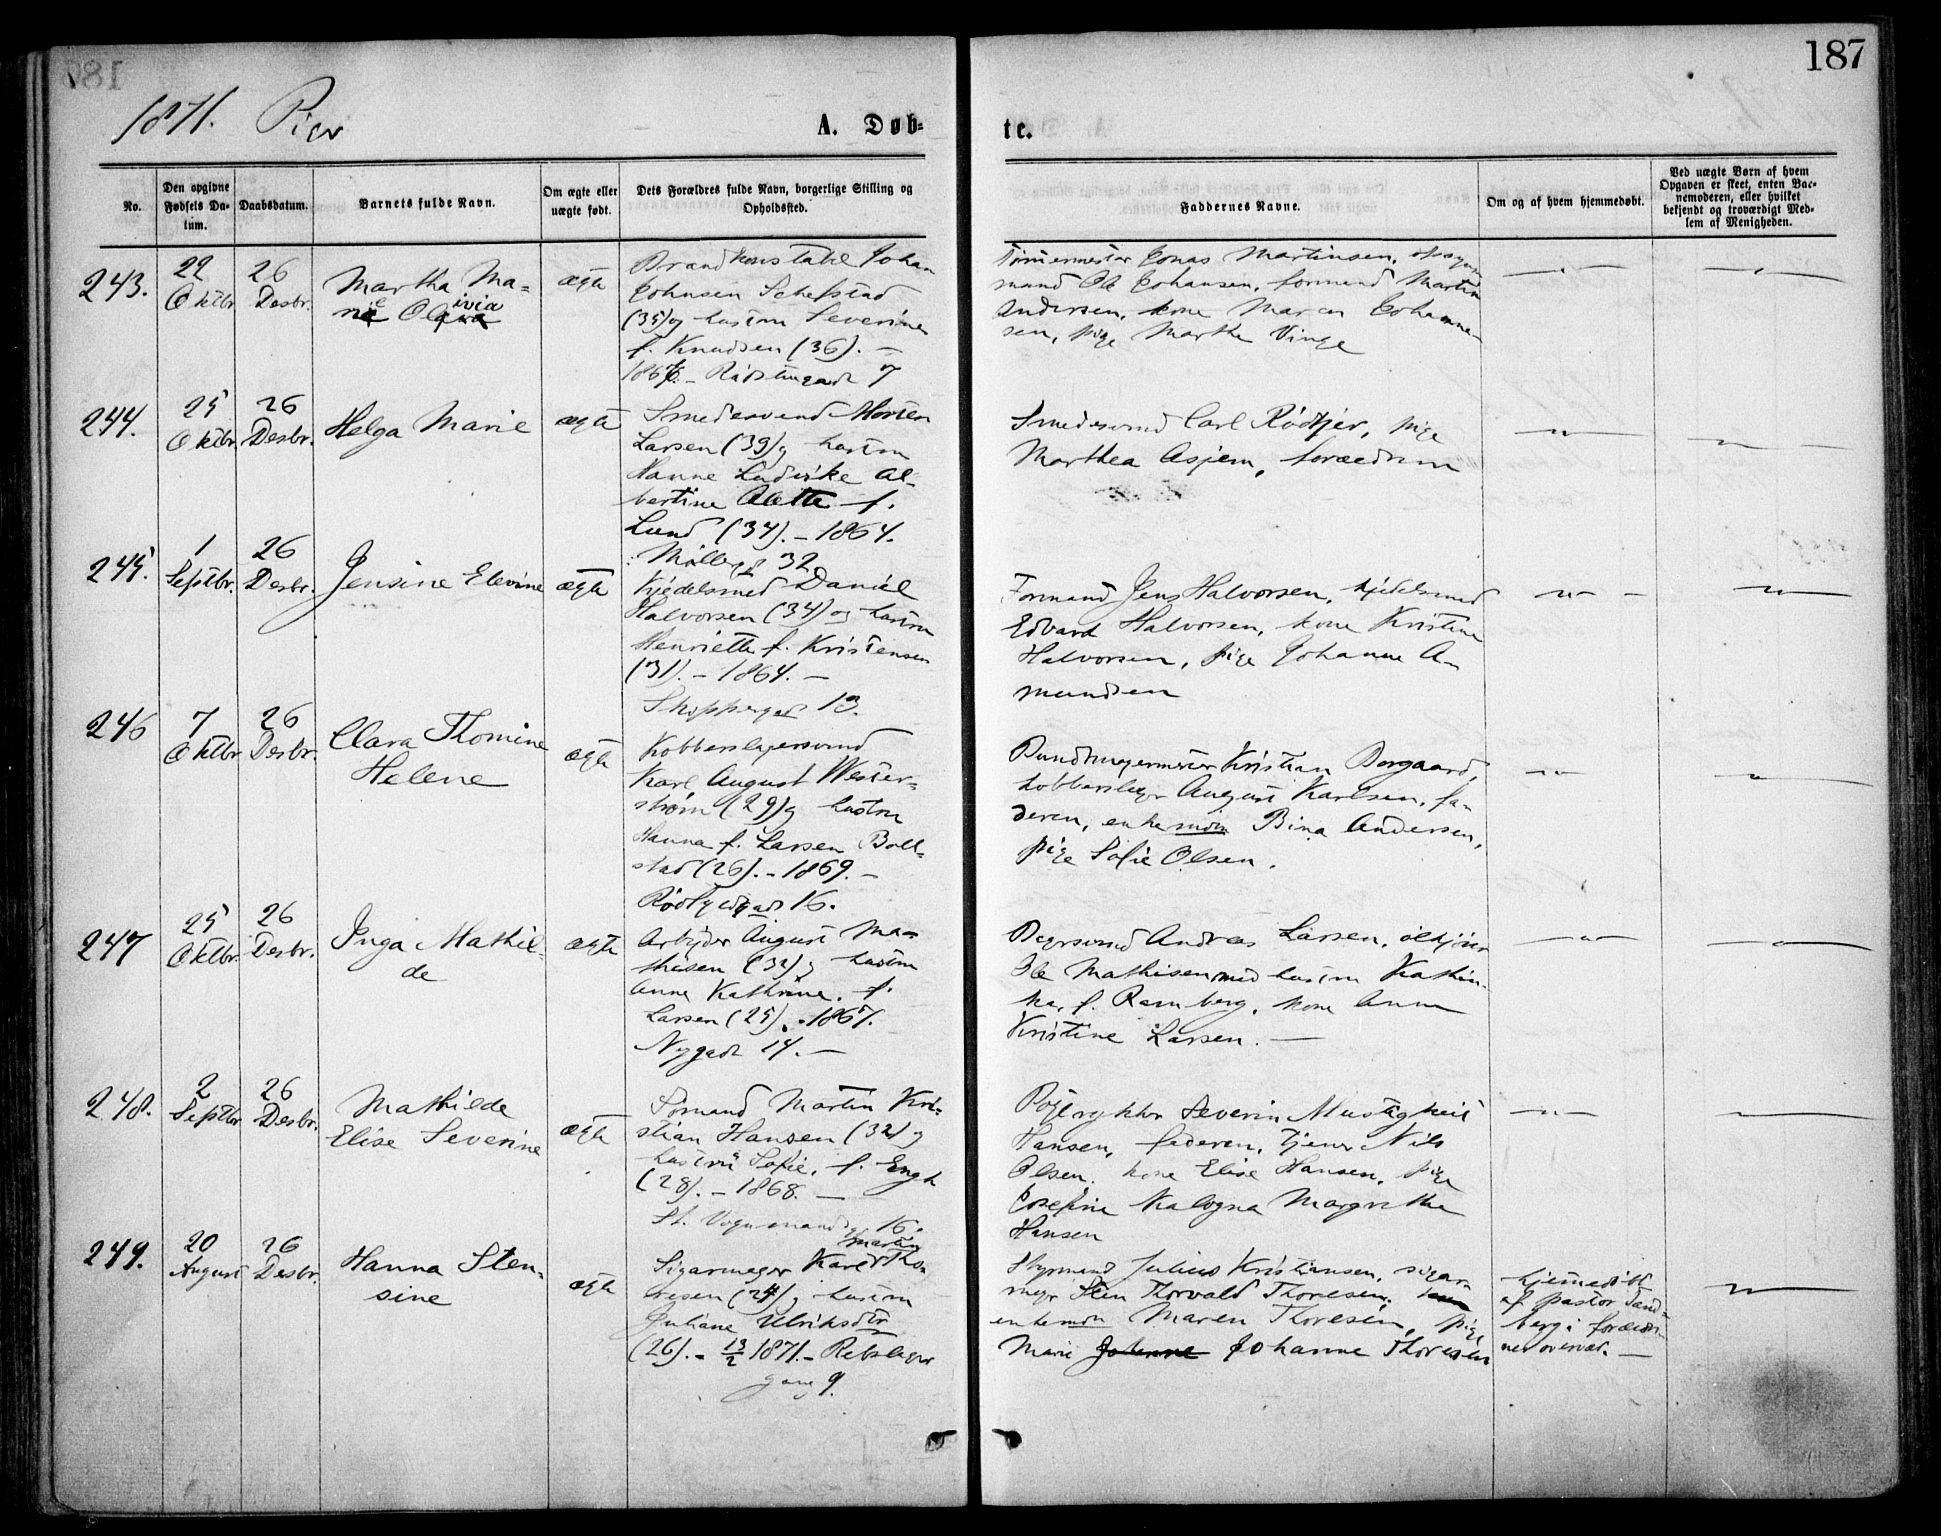 187
1871. Piger
A. Døb-
te.
No.
Den opgivne Fødsels Da-
tum.
Daabsdatum.
Barnets fulde Navn.
Om ægte eller
uægte født.
Dets Forældres fulde Navn, borgerlige Stilling og
Opholdssted.
Faddernes Navne.
Om og af hvem hjemmedøbt.
Ved uægte Børn af hvem
Opgaven er skeet, enten Bar-
nemoderen, eller hvilket
bekjendt og troværdigt Med-
lem af Menigheden.
243.
22
Oktbr
26
Desbr.
Martha Ma-
rie Olivia
ægte
Brandkonstabel Johan
Johnsen Schefstad
(35) og hustru Severine
f. Knudsen (36). —
1867. - Rødfyllgade 7
Tømmermester Jonas Martinsen,
mand Ole Johansen, formand Martin
Andersen, kone Maren Johanne-
sen, pige Marthe Vinge
244.
25
Oktbr.
26
Desbr.
Helga Marie
ægte
Smedesvend Morten
Larsen (39) og hustru
Hanne Ludvike Al-
bertine Alette f.
Lund (34). - 1864.
Møllerg 32
Smedesvend Carl Rødtjer, pige
Marthea Asjem, forældrene
245.
1
Septbr.
26
Desbr.
Jensine Elevine
ægte
Kjedelsmed Daniel
Halvorsen (34) og hustru
Henriette f. Kristensen
(31). - 1864. —
Skippergad 13.
Formand Jens Halvorsen, kjedelsmed
Edvard Halvorsen, kone Kristine
Halvorsen, pige Johanne A-
mundsen
246
7
Oktbr
26
Desbr.
Clara Thomine
Helene
ægte
Kobberslagersvend
Karl August Wester-
strøm (29) og hustru
Hanna f. Larsen Boll-
stad (26). - 1869. —
16.
Bundtmagermester Kristian Borgaard,
kobberslager August Karlsen, fa-
deren, enkemdm Bina Andersen,
pige Sofie Olsen.
247
25
Oktbr.
26
Desbr.
Inga Mathil-
de
ægte
Arbejder August Ma-
thisen (32) og hustru
Anne Kathrine, f.
Larsen (25). - 1867.
Nygade 14. —
Bagersvend Andreas Larsen, ølkjører
Ole Mathisen med hustru Kathin-
ka, f. Ramberg, kone Anne
Kristine Larsen. —
248.
2
Septbr
26
Desbr.
Mathilde
Elise Severine
ægte
Formand Martin Kri-
stian Hansen (32) og
hustru Sofie, f. Engh
(28). - 1868. —
St. Vognmandsg 16.
Severin Mustigheit
Hansen, faderen, tjener Nils
Olsen, kone Elise Hansen, pige
Josefine Valogna Margrethe
Hansen
249.
20
August
26
Desbr.
Hanna Sten-
sine
ægte
Martin
Sigarmager Karl Tho-
resen (24) og hustru
Juliane Ulriksdtr
(26). - 13/2 1871. - Rebslager
gang 9.
Styrmand Julius Kristiansen, sigar-
mgr Sten Thorvald Thoresen,
enkemdm Maren Thoresen, pige
Marie Johanne Thoresen
hjemmedøbt
af pastor Sand-
berg i forældre-
nes overvær. —